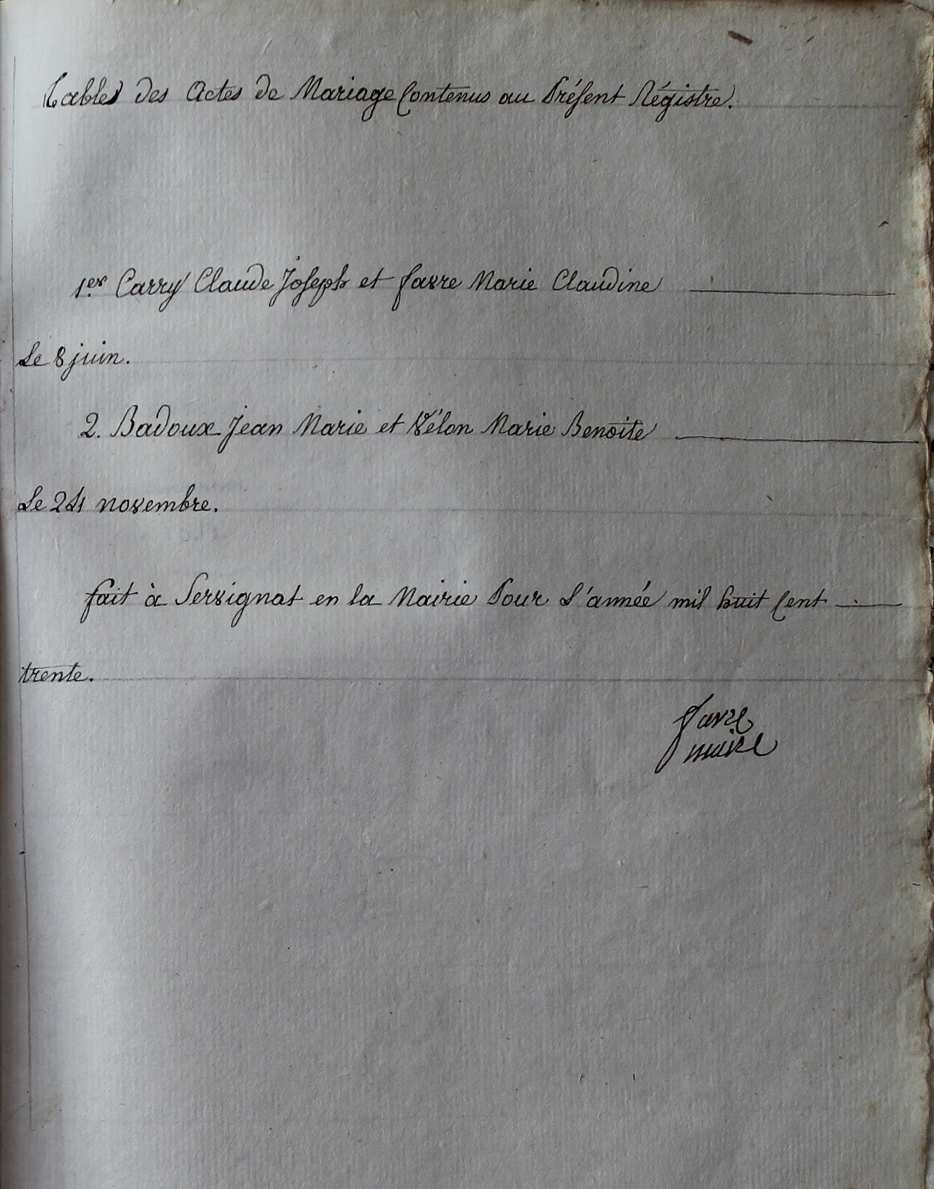 Tables des Actes de Mariage Contenus au Présent Régistre.
1.er Carry Claude Joseph et favre Marie Claudine
Le 8 juin.
2. Badoux Jean Marie et Vélon Marie Benoite
Le 24 novembre.
fait à Servignat en la Mairie Pour L'année mil huit Cent
trente.
favre
maire